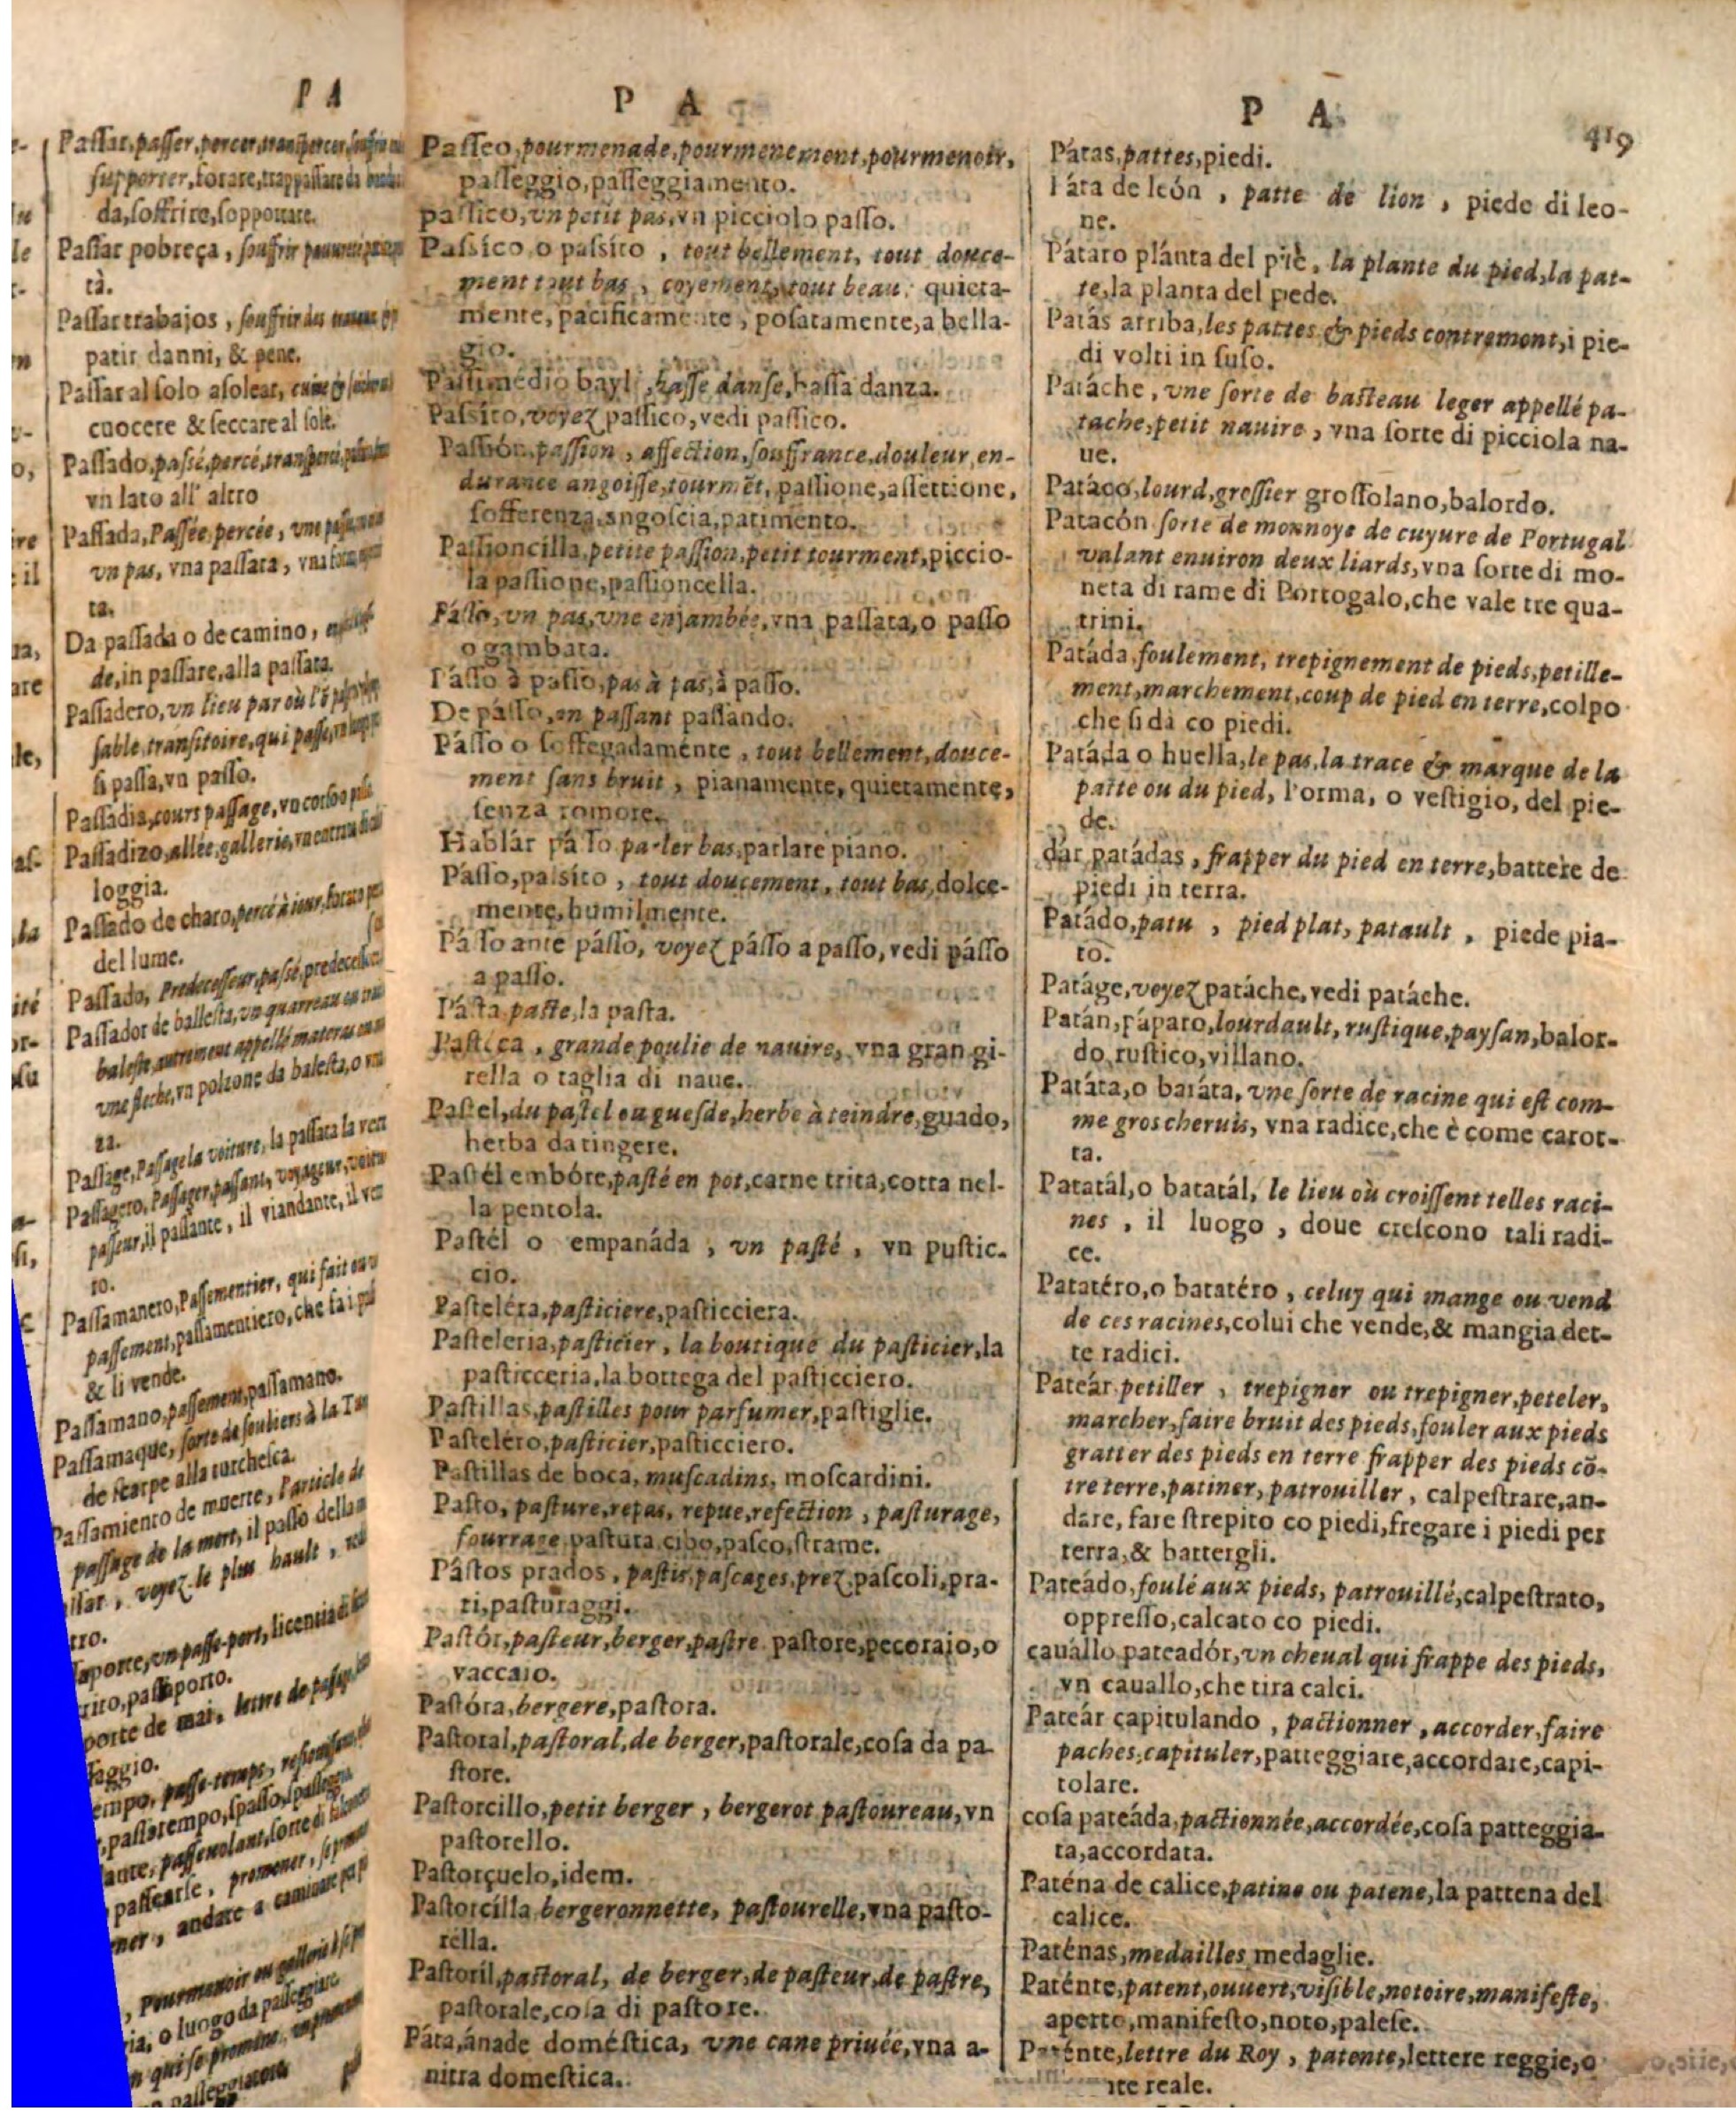 P A
Passar, passer, percer, transpercer,
supporter, forare, trappassare da
da, soffrire, sopportare.
Passar pobreça, souffrir
tà.
Passar trabajos, souffrir des
patir danni, & pene.
Passar al solo asolear,
cuocere & seccare al sole.
Passado, passé, percé, transpercé,
vn lato all' altro
Passada, Passée, percée, vne
vn pas, vna passata, vna
ta.
Da passada o de camino,
de, in passare, alla passata.
Passadero, vn lieu par où l'ō
sable, transitoire, qui passe,
si passa, vn passo.
Passadia, cours passage, vn corso o
Passadizo, allée, gallerie,
loggia.
Passado de charo, percé à iour, forato
del lume.
Passado, Predecesseur, passé,
Passador de ballesta, vn quarreau
baleste, autrement appellé materas
vne fleche, vn polzone da balesta, o
za.
Passage, Passage la voiture, la passata la
Passagero, Passager, passant, voyageur,
passeur, il passante, il viandante, il
ro.
Passamanero, Passementier, qui fait
passement, passamentiero, che fa i
& li vende.
Passamano, passement, passamano.
Passamaque, sorte de souliers à la
de scarpe alla turchesca.
Passamiento de muerte, l'article de
passage de la mort, il passo della
voyez le plus hault,
tro.
vn passe-port,
passaporto.
porte de mar, lettre de
passe-temps,
passatempo, spasso,
passevolant, sorte di
passearse, promener,
andare a caminare
Pourmenoir ou gallerie
o luogo da passeggiare
qui se promene,
P A
Passeo, pourmenade, pourmenement, pourmenoir,
passeggio, passeggiamento.
passico, vn petit pas, vn picciolo passo.
Passíco o passíto, tout bellement, tout douce-
ment tout bas, coyement, tout beau, quieta-
mente, pacificamente, posatamente, a bella-
gio.
Passimédio bayl, basse danse, bassa danza.
Passíto, voyez passico, vedi passico.
Passión, passion, affection, souffrance, douleur, en-
durance angoisse, tourmēt, passione, affettione,
sofferenza, angoscia, patimento.
Passioncilla, petite passion, petit tourment, piccio-
la passione, passioncella.
Pásso, vn pas, vne enjambée, vna passata, o passo
o gambata.
Pásso à passo, pas à pas, à passo.
De pásso, en passant passando.
Pásso o sossegadaménte, tout bellement, douce-
ment sans bruit, pianamente, quietamente,
senza romore.
Hablár pásso parler bas, parlare piano.
Pásso, passíto, tout doucement, tout bas, dolce-
mente, humilmente.
Pásso ante pásso, voyez pásso a passo, vedi pásso
a passo.
Pásta paste, la pasta.
Pastéca, grande poulie de nauire, vna gran gi-
rella o taglia di naue.
Pastel, du pastel ou guesde, herbe à teindre, guado,
herba da tingere.
Pastél embóte, pasté en pot, carne trita, cotta nel-
la pentola.
Pastél o empanáda, vn pasté, vn pustic-
cio.
Pasteléra, pasticiere, pasticciera.
Pasteleria, pasticier, la boutique du pasticier, la
pasticceria, la bottega del pasticciero.
Pastillas, pastilles pour parfumer, pastiglie.
Pasteléro, pasticier, pasticciero.
Pastillas de boca, muscadins, moscardini.
Pasto, pasture, repas, repue, refection, pasturage,
fourrage pastura cibo, pasco, strame.
Pástos prados, pastis, pascages, prez, pascoli, pra-
ti, pasturaggi.
Pastór, pasteur, berger, pastre pastore, pecoraio, o
vaccaio.
Pastóra, bergere, pastora.
Pastoral, pastoral, de berger, pastorale, cosa da pa-
store.
Pastorcillo, petit berger, bergerot pastoureau, vn
pastorello.
Pastorçuelo, idem.
Pastorcílla bergeronnette, pastourelle, vna pasto-
rella.
Pastoríl, pastoral, de berger, de pasteur, de pastre,
pastorale, cosa di pastore.
Páta, ánade doméstica, vne cane priuée, vna a-
nitra domestica.
P A
419
Pátas, pattes, piedi.
Páta de león, patte de lion, piede di leo-
ne.
Pátaro plánta del piè, la plante du pied, la pat-
te, la planta del pede.
Patás arriba, les pattes & pieds contremont, i pie-
di volti in suso.
Patáche, vne sorte de basteau leger appellé pa-
tache, petit nauire, vna sorte di picciola na-
ue.
Patáco, lourd, grossier grossolano, balordo.
Patacón sorte de monnoye de cuyure de Portugal
valant enuiron deux liards, vna sorte di mo-
neta di rame di Portogalo, che vale tre qua-
trini.
Patáda foulement, trepignement de pieds, petille-
ment, marchement, coup de pied en terre, colpo
che si dà co piedi.
Patáda o huella, le pas, la trace & marque de la
patte ou du pied, l'orma, o vestigio, del pie-
de.
dár patádas, frapper du pied en terre, battere de
piedi in terra.
Patádo, patu, pied plat, patault, piede pia-
to.
Patáge, voyez patáche, vedi patáche.
Patán, páparo, lourdault, rustique, paysan, balor-
do, rustico, villano.
Patáta, o batáta, vne sorte de racine qui est com-
me gros cheruis, vna radice, che è come carot-
ta.
Patatál, o batatál, le lieu où croissent telles raci-
nes, il luogo, doue crescono tali radi-
ce.
Patatéro, o batatéro, celuy qui mange ou vend
de ces racines, colui che vende, & mangia det-
te radici.
Pateár petiller, trepigner ou trepigner, peteler,
marcher, faire bruit des pieds, fouler aux pieds
gratter des pieds en terre frapper des pieds cō-
tre terre, patiner, patrouiller, calpestrare, an-
dare, fare strepito co piedi, fregare i piedi per
terra, & battergli.
Pateádo, foulé aux pieds, patrouillé, calpestrato,
oppresso, calcato co piedi.
cauállo pateadór, vn cheual qui frappe des pieds,
vn cauallo, che tira calci.
Pateár capitulando, pactionner, accorder, faire
paches, capituler, patteggiare, accordare, capi-
tolare.
cosa pateáda, pactionnée, accordée, cosa patteggia-
ta, accordata.
Paténa de calice, patine ou patene, la pattena del
calice.
Paténas, medailles medaglie.
Paténte, patent, ouuert, visible, notoire, manifeste,
aperto, manifesto, noto, palese.
Paténte, lettre du Roy, patente, lettere reggie, o
reale.